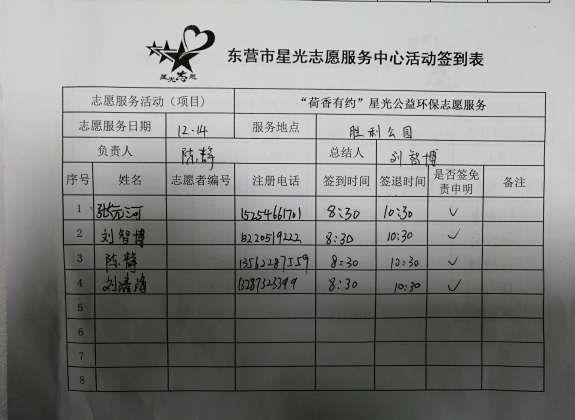 星光志愿
东营市星光志愿服务中心活动签到表
志愿服务活动（项目） “荷香有约”星光公益环保志愿服务
志愿服务日期 12.14 服务地点 胜利公园
负责人 陈静 总结人 刘智博
序号 姓名 志愿者编号 注册电话 签到时间 签退时间 是否签免责申明 备注
1 张元河 15254661701 8:30 10:30 ✓
2 刘智博 15220519222 8:30 10:30 ✓
3 陈静 13562287559 8:30 10:30 ✓
4 8:30 10:30 ✓
5
6
7
8